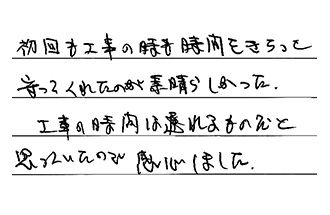 初回も工事の時も時間をきちっと
守ってくれたのが素晴らしかった.
工事の時間は遅れるものだと
思っていたので感心しました.